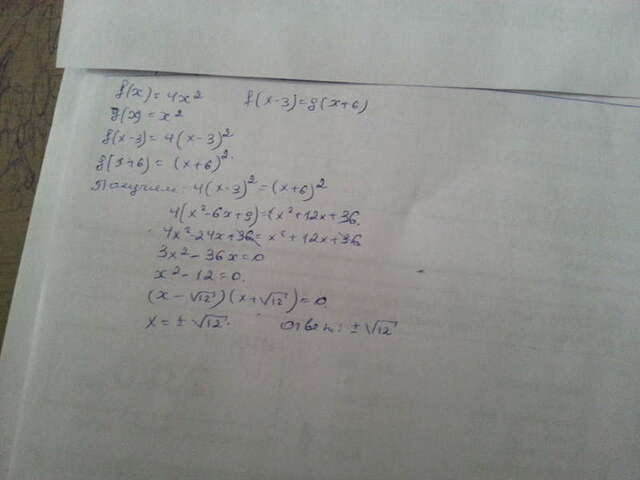 f(x) = 4x² f(x-3) = g(x+6)
g(x) = x²
f(x-3) = 4(x-3)²
g(x+6) = (x+6)²
Получим: 4(x-3)² = (x+6)²
4(x²-6x+9) = x²+12x+36.
4x²-24x+36 = x²+12x+36
3x²-36x=0
x²-12=0.
(x-√12)(x+√12)=0.
x=±√12. Ответ: ±√12